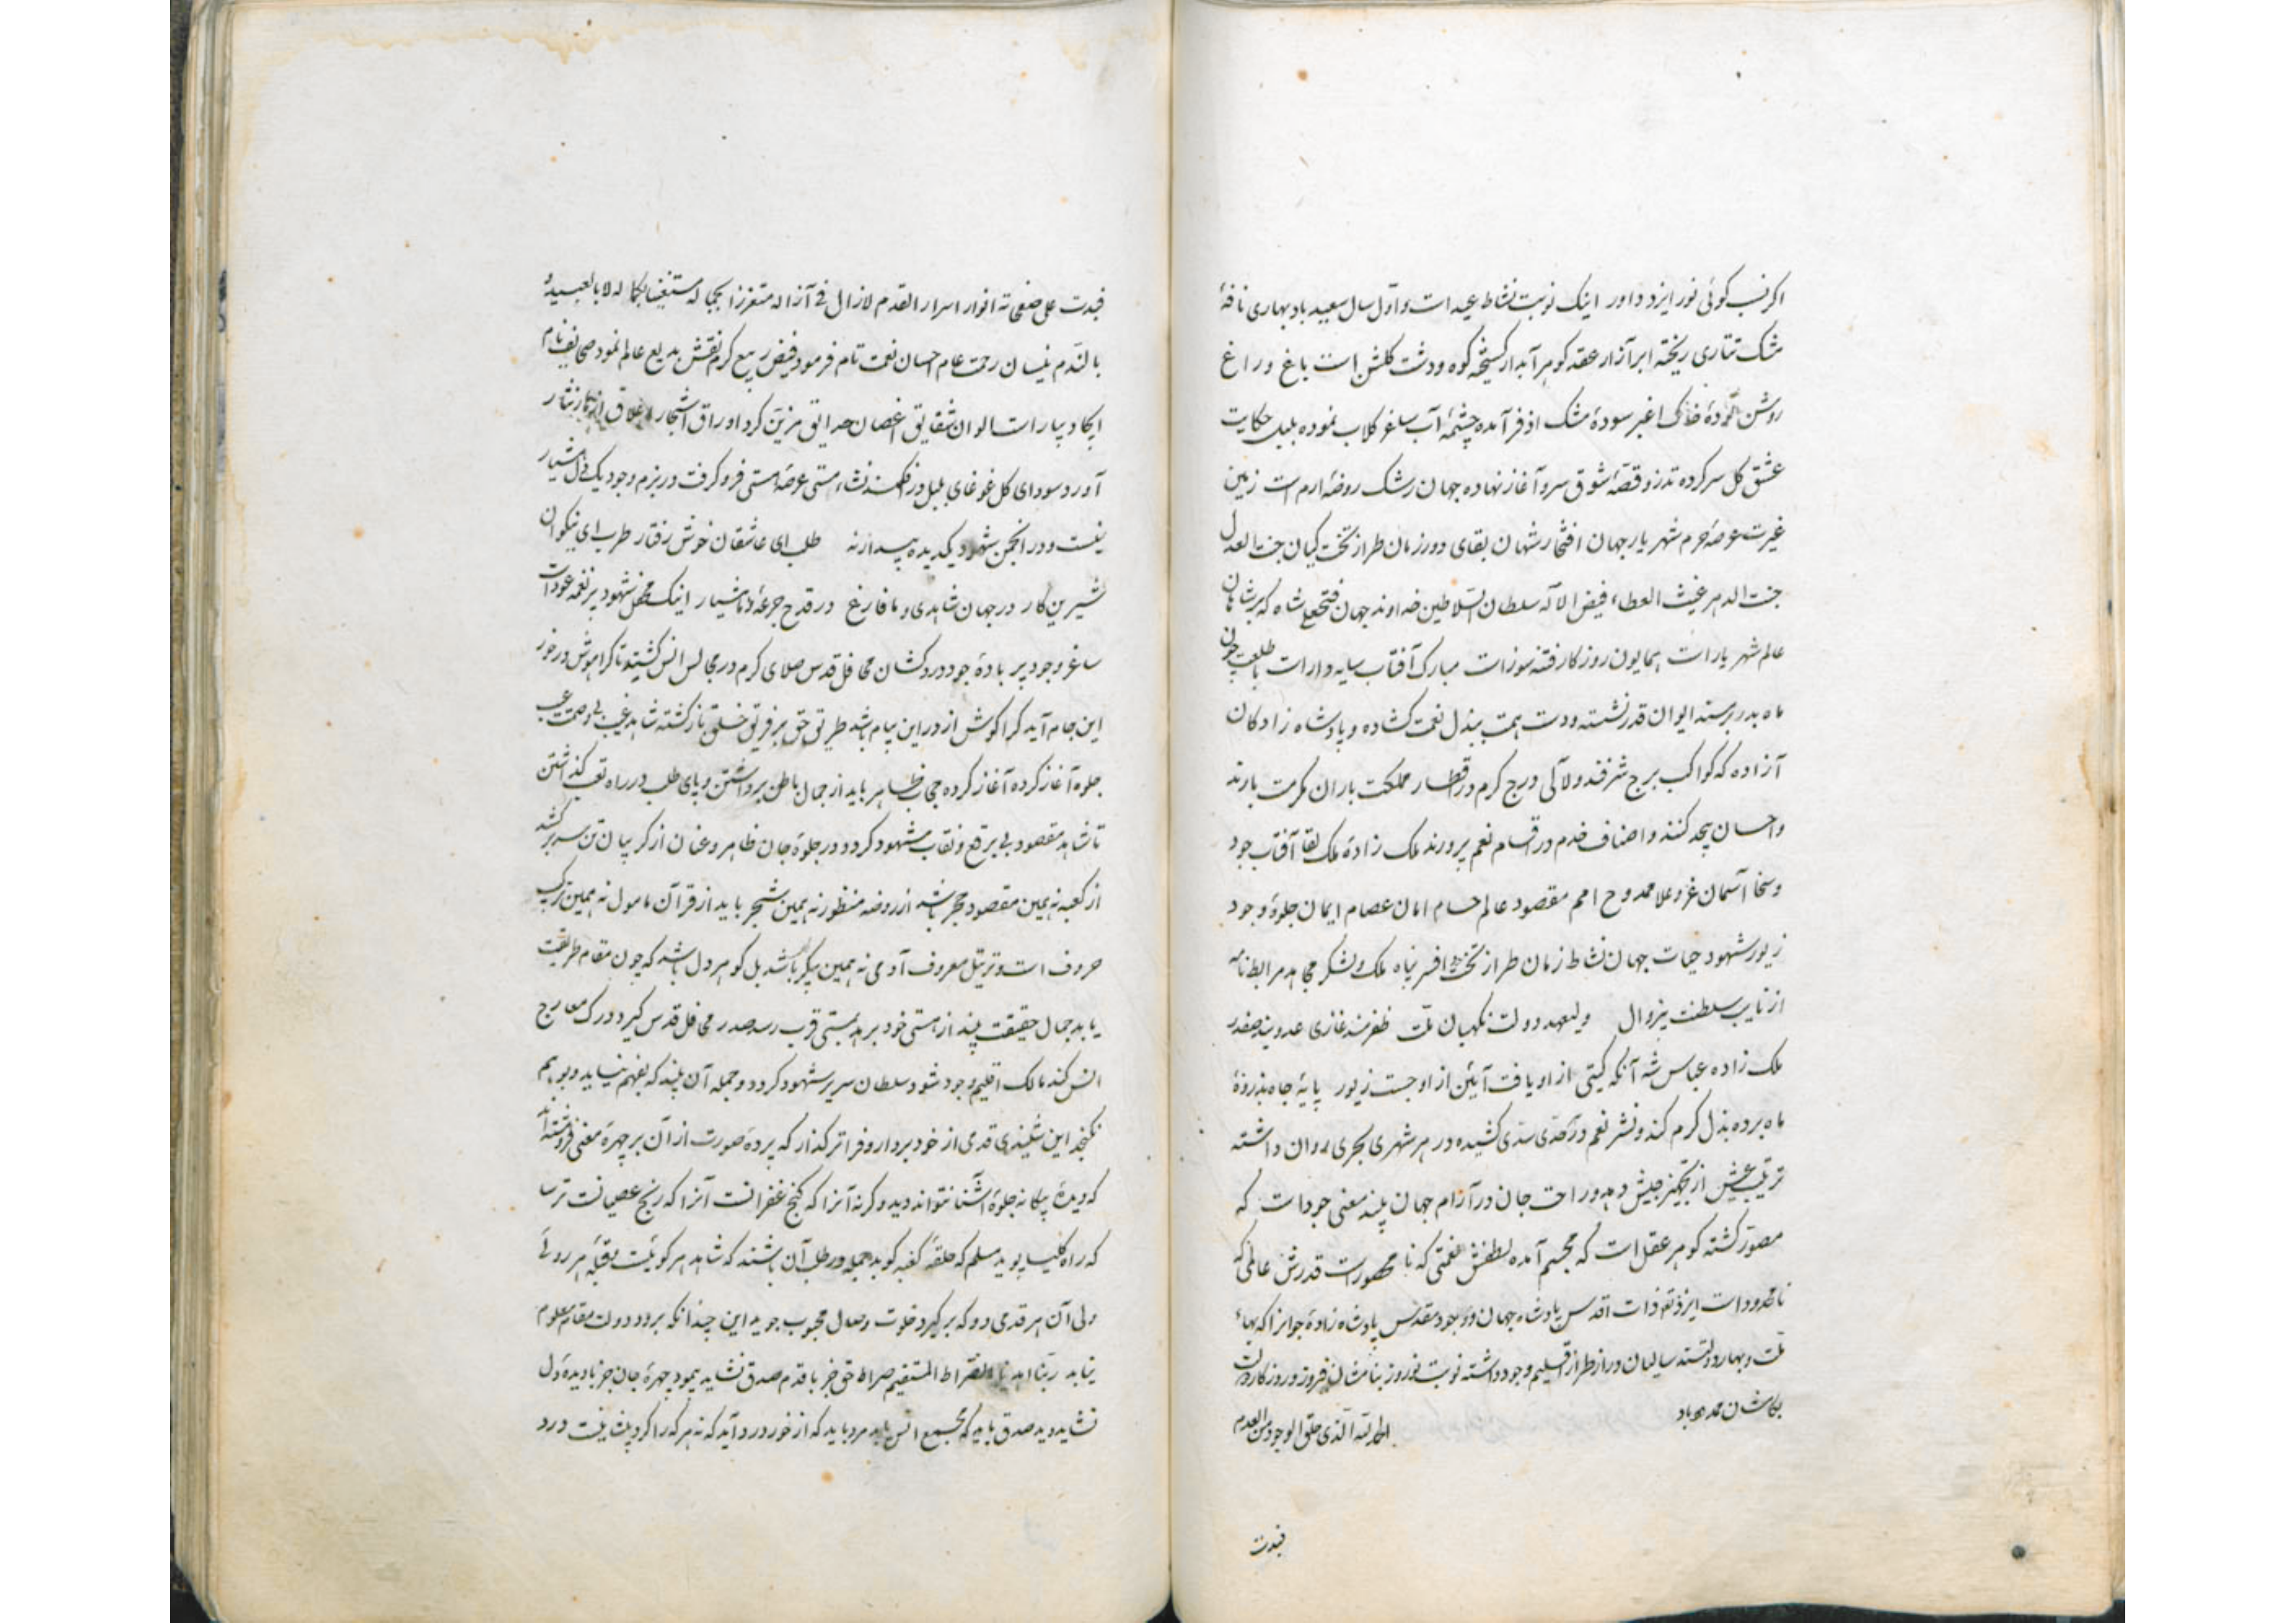 اکر نسب کوئی نور ایزد داور اینک نوبت نشاط عید است و اول سال سعید باد بهاری نافهٔ
مشک تتاری ریخته ابر آزار عقد کوهر آبدار کسیخته کوه و دشت کلشن است باغ و راغ
روشن تودهٔ خاک اغبر سودهٔ مشک اذفر آمده چشمهٔ آب ساغر کلاب نموده بلبل حکایت
عشق کل سر کرده تذرو قصهٔ شوق سرو آغاز نهاده جهان رشک روضهٔ ارم است زمین
غیرت عرصهٔ حرم شهریار جهان افتخار شهان بقای دور زمان طراز تخت کیان جنت العدل
جنت الدهر غیث العطاء فیض الاله سلطان السلاطین خداوند جهان فتحعلی شاه که بر شاهان
عالم شهریار است همایون روزکار فتنه سوز است مبارک آفتاب سایه دار است با طلعت چون
ماه بدر بر مسند ایوان قدر نشسته و دست همت ببذل نعمت کشاده و پادشاه زادکان
آزاده که کواکب برج شرفند و لآلی درج کرم در اقطار مملکت باران مکرمت بارند
و احسان بیحد کنند و اصناف خدم در اقسام نعم پرورند ملک زادهٔ ملک لقا آفتاب جود
و سخا آسمان عز و علا ممدوح امم مقصود عالم حسام امان عصام ایمان جلوهٔ وجود
زیور شهود حیات جهان نشاط زمان طراز تخت و افسر پناه ملک و لشکر مجاهد مرابط نامه
از نایب سلطنت بیزوال ولیعهد دولت نکهبان ملت ظفرمند غازی عدو بند صفدر
ملک زاده عباس شه آنکه کیتی از او یافت آئین از او جست زیور پایهٔ جاه بذروهٔ
ماه برده بذل کرم کند و نشر نعم در هر حدی سدی کشیده در هر شهری بحری روان داشته
ترتیب عیش از تجهیز جیش دهد و راحت جان در آرام جهان بیند معنی جود است که
مصور کشته کوهر عقل است که مجسم آمده لطفش نعمتی که نا محصور است قدرش عالمی که
نامحدود است ایزد تعالی ذات اقدس پادشاه جهان و وجود مقدس پادشاه زادهٔ جوانرا که بهاء
ملت و بهار دولتند سالیان دراز طراز اقلیم وجود داشته نوبت نوروز بنامشان فیروز و روزکار دولت
بکامشان ممهد باد
الحمد لله الذی خلق الوجود من العدم
فبدت
فبدت علی صفحاته انوار اسرار القدم لازال فی آزاله متعززا بجماله مستغنیا بکماله لا بالعبید و
بالندم نیسان رحمت عام احسان نعمت تام فرمود فیض ربیع کرم نقش بدیع عالم نمود صحایف نام
ایجاد بیاراست الوان شقایق اغصان حدایق مزین کرد اوراق اشجار
آورد سودای کل غوغای بلبل در فکند نشاء مستی عرصهٔ هستی فرو کرفت در بزم وجود یک دل هشیار
نیست و در انجمن شهود یک دیده بیدار نه طلب ای عاشقان خوش رفتار طرب ای نیکوان
شیرین کار در جهان شاهدی و ما فارغ در قدح جرعهٔ و ما هشیار اینک محفل شهود پر نغمه عود است
ساغر وجود پر بادهٔ جود دردکشان محافل قدس صلای کرم در مجالس انس کشیده تا کرا هوش در خور
این جام آید کرا کوش از در این پیام باشد طریق حق بر فریق خلق باز کشته شاهد غیب بی وصمت عیب
جلوه آغاز کرده آغاز کرده حجاب ظاهر باید از جمال باطن برداشتن و پای طلب در راه تعب کذاشتن
تا شاهد مقصود بی برقع و نقاب مشهود کردد و در جلوهٔ جان ظاهر و عیان از کریبان تن سر بر کشد
از کعبه نه همین مقصود حجر باشد از روضه منظور نه همین شجر باید از قرآن مامول نه همین ترکیب
حروف است و ترتیل معروف آدمی نه همین پیکر باشد بل کوهر دل باشد که چون مقام طریقت
یابد جمال حقیقت بیند از هستی خود برهد بمستی قرب رسد صدر محافل قدس کیرد درک معارج
انس کند مالک اقلیم وجود شود سلطان سریر شهود کردد و جمله آن بیند که بفهم نیاید و بوهم
نکنجد این شنیدی قدمی از خود بردار و فراتر کذار که پردهٔ صورت از آن بر چهرهٔ معنی فروهشته اند
که دیدهٔ بیکانه جلوهٔ آشنا نتواند دید و کرنه آنرا که کنج غفرانست آنرا که رنج عصیانست ترسا
که راه کلیسا پوید مسلم که حلقهٔ کعبه کوبد جمله در طلب آن باشند که شاهد هر کوئیست و قبلهٔ هر روئی
ولی آن هر قدمی دو که بر کیرد خلوت وصال محبوب جوید این چندانکه برود دولت مقام معلوم
نیابد ربنا اهدنا الصراط المستقیم صراط حق جز با قدم صدق نشاید پیمود چهرهٔ جان جز با دیدهٔ دل
نشاید دید صدق باید که بمجمع انس باید مرد باید که از خود در آید که نه هر که را کرد پشتیست درد